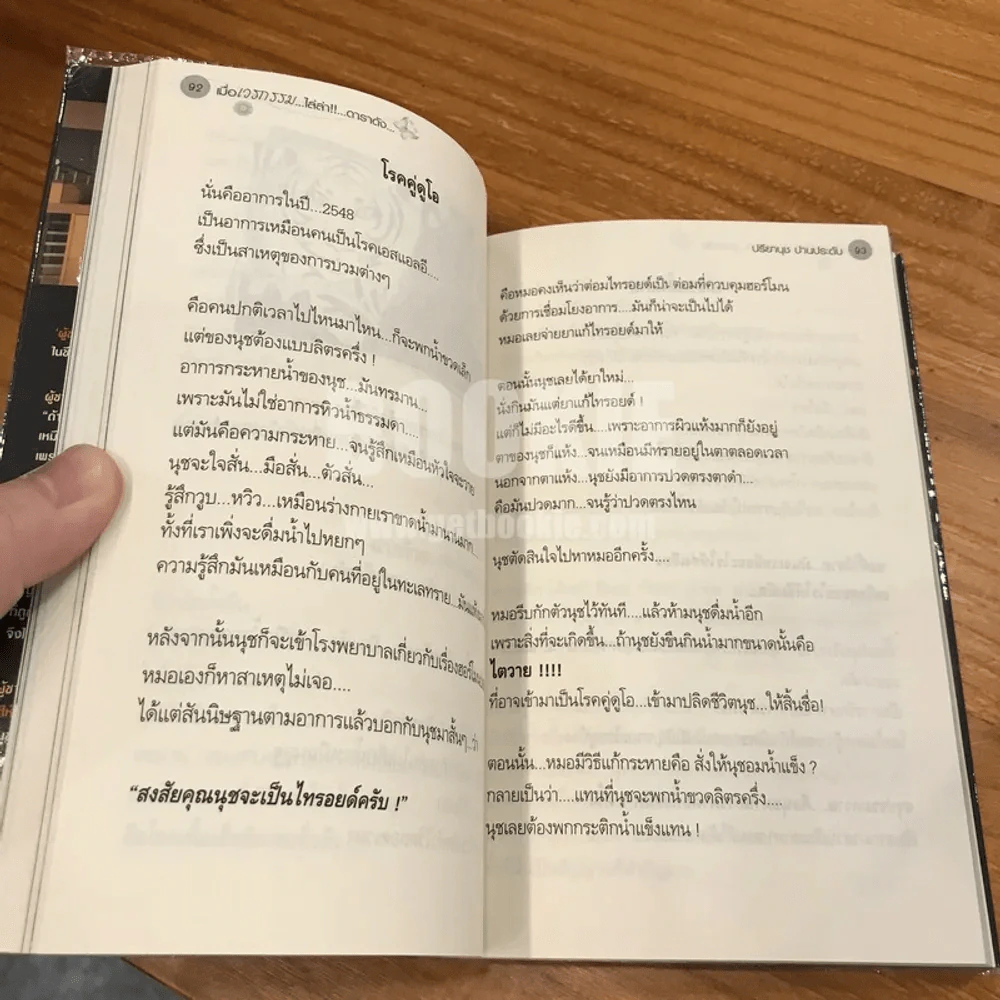 92 เมื่อเวรกรรม...ไล่ล่า!!...ดาราดัง...
โรคคู่ดูโอ
นั่นคืออาการในปี...2548
เป็นอาการเหมือนคนเป็นโรคเอสแอลอี....
ซึ่งเป็นสาเหตุของการบวมต่างๆ
คือคนปกติเวลาไปไหนมาไหน...ก็จะพกน้ำขวดเล็ก
แต่ของนุชต้องแบบลิตรครึ่ง !
อาการกระหายน้ำของนุช...มันทรมาน...
เพราะมันไม่ใช่อาการหิวน้ำธรรมดา....
แต่มันคือความกระหาย...จนรู้สึกเหมือนหัวใจจะวาย
นุชจะใจสั่น...มือสั่น...ตัวสั่น...
รู้สึกวูบ...หวิว...เหมือนร่างกายเราขาดน้ำมานานมาก...
ทั้งที่เราเพิ่งจะดื่มน้ำไปหยกๆ
ความรู้สึกมันเหมือนกับคนที่อยู่ในทะเลทราย...
หลังจากนั้นนุชก็จะเข้าโรงพยาบาลเกี่ยวกับเรื่องฮอร์โมน
หมอเองก็หาสาเหตุไม่เจอ....
ได้แต่สันนิษฐานตามอาการแล้วบอกกับนุชมาสั้นๆ...ว่า
“สงสัยคุณนุชจะเป็นไทรอยด์ครับ !”
ปรียานุช ปานประดับ 93
คือหมอคงเห็นว่าต่อมไทรอยด์เป็น ต่อมที่ควบคุมฮอร์โมน
ด้วยการเชื่อมโยงอาการ....มันก็น่าจะเป็นไปได้
หมอเลยจ่ายยาแก้ไทรอยด์มาให้
ตอนนั้นนุชเลยได้ยาใหม่...
นั่งกินมันแต่ยาแก้ไทรอยด์ !
แต่ก็ไม่มีอะไรดีขึ้น....เพราะอาการผิวแห้งมากก็ยังอยู่
ตาของนุชก็แห้ง...จนเหมือนมีทรายอยู่ในตาตลอดเวลา
นอกจากตาแห้ง...นุชยังมีอาการปวดตรงตาดำ...
คือมันปวดมาก...จนรู้ว่าปวดตรงไหน
นุชตัดสินใจไปหาหมออีกครั้ง....
หมอรีบกักตัวนุชไว้ทันที....แล้วห้ามนุชดื่มน้ำอีก
เพราะสิ่งที่จะเกิดขึ้น...ถ้านุชยังขืนกินน้ำมากขนาดนั้นคือ
ไตวาย !!!!
ที่อาจเข้ามาเป็นโรคคู่ดูโอ...เข้ามาปลิดชีวิตนุช...ให้สิ้นชื่อ!
ตอนนั้น...หมอมีวิธีแก้กระหายคือ สั่งให้นุชอมน้ำแข็ง ?
กลายเป็นว่า....แทนที่นุชจะพกน้ำขวดลิตรครึ่ง....
นุชเลยต้องพกกระติกน้ำแข็งแทน !